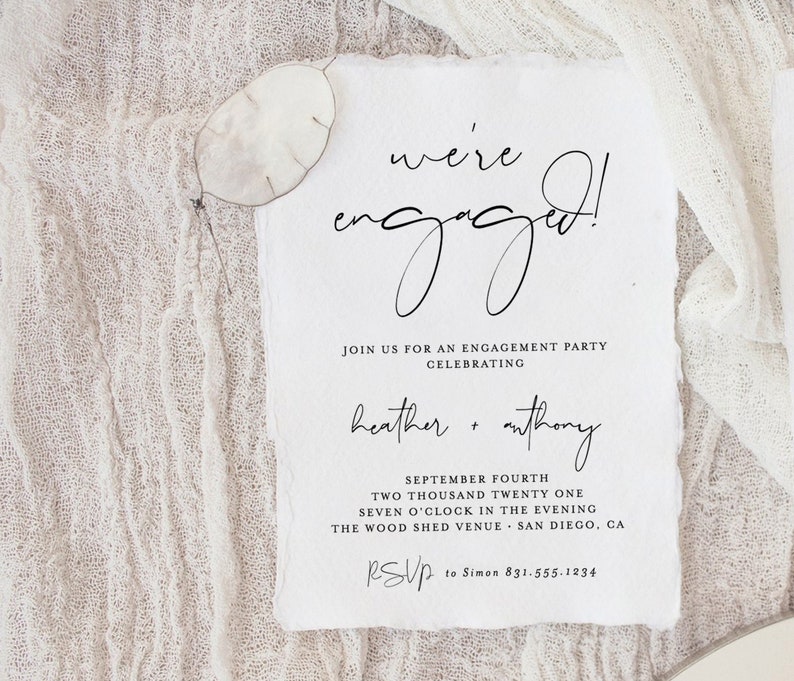 we're
engaged!
JOIN US FOR AN ENGAGEMENT PARTY
CELEBRATING
heather + anthony
SEPTEMBER FOURTH
TWO THOUSAND TWENTY ONE
SEVEN O'CLOCK IN THE EVENING
THE WOOD SHED VENUE · SAN DIEGO, CA
RSVP to Simon 831.555.1234